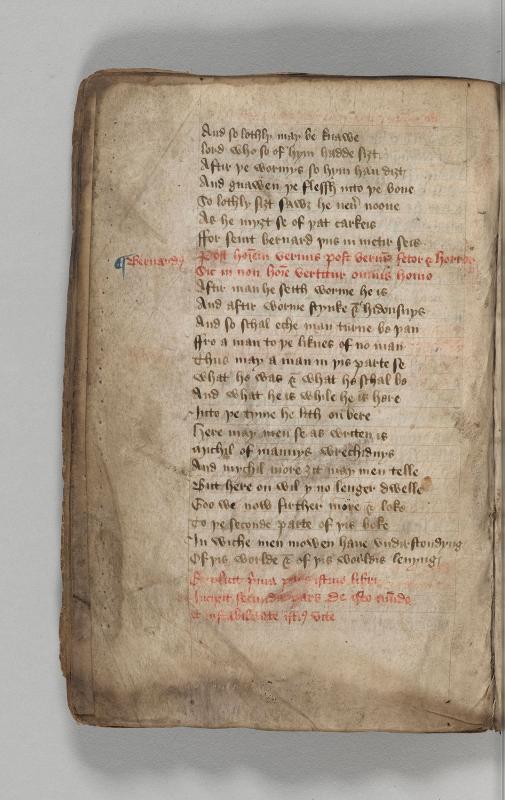 And so lothly may be knawe
lord who so of hym hadde siȝt
Aftir þe wormys so hym han diȝt
And gnawen þe flessh into þe bone
So lothly siȝt sawȝ he neu̅ noone
As he myȝt se of þat carkeis
ffor seint bernard þus in metir seis
Bernardꝰ
Post ho̅i̅em vermis post verme̅ fetor & horror
Sic in non ho̅i̅e vertitur omnis homo
Aftir man he seith worme he is
And aftir worme stynke & hidousnys
And so schal eche man turne be þan
ffro a man to þe liknes of no man
Thus may a man in þis parte se
What he was & what he schal be
And what he is while he is here
Into þe tyme he lith on bere
Here may men se as writen is
mychil of mannys wrechidnys
And mychil more ȝit may men telle
But here on wil y no lenger dwelle
Goo we now firther more & loke
To þe seconde parte of þis boke
In wiche men mowen haue vndirstondyng
Of þis worlde & of þis worldis leuyng
Explicit p̅ma pars istius libri
Incipit secunda pars de
vite